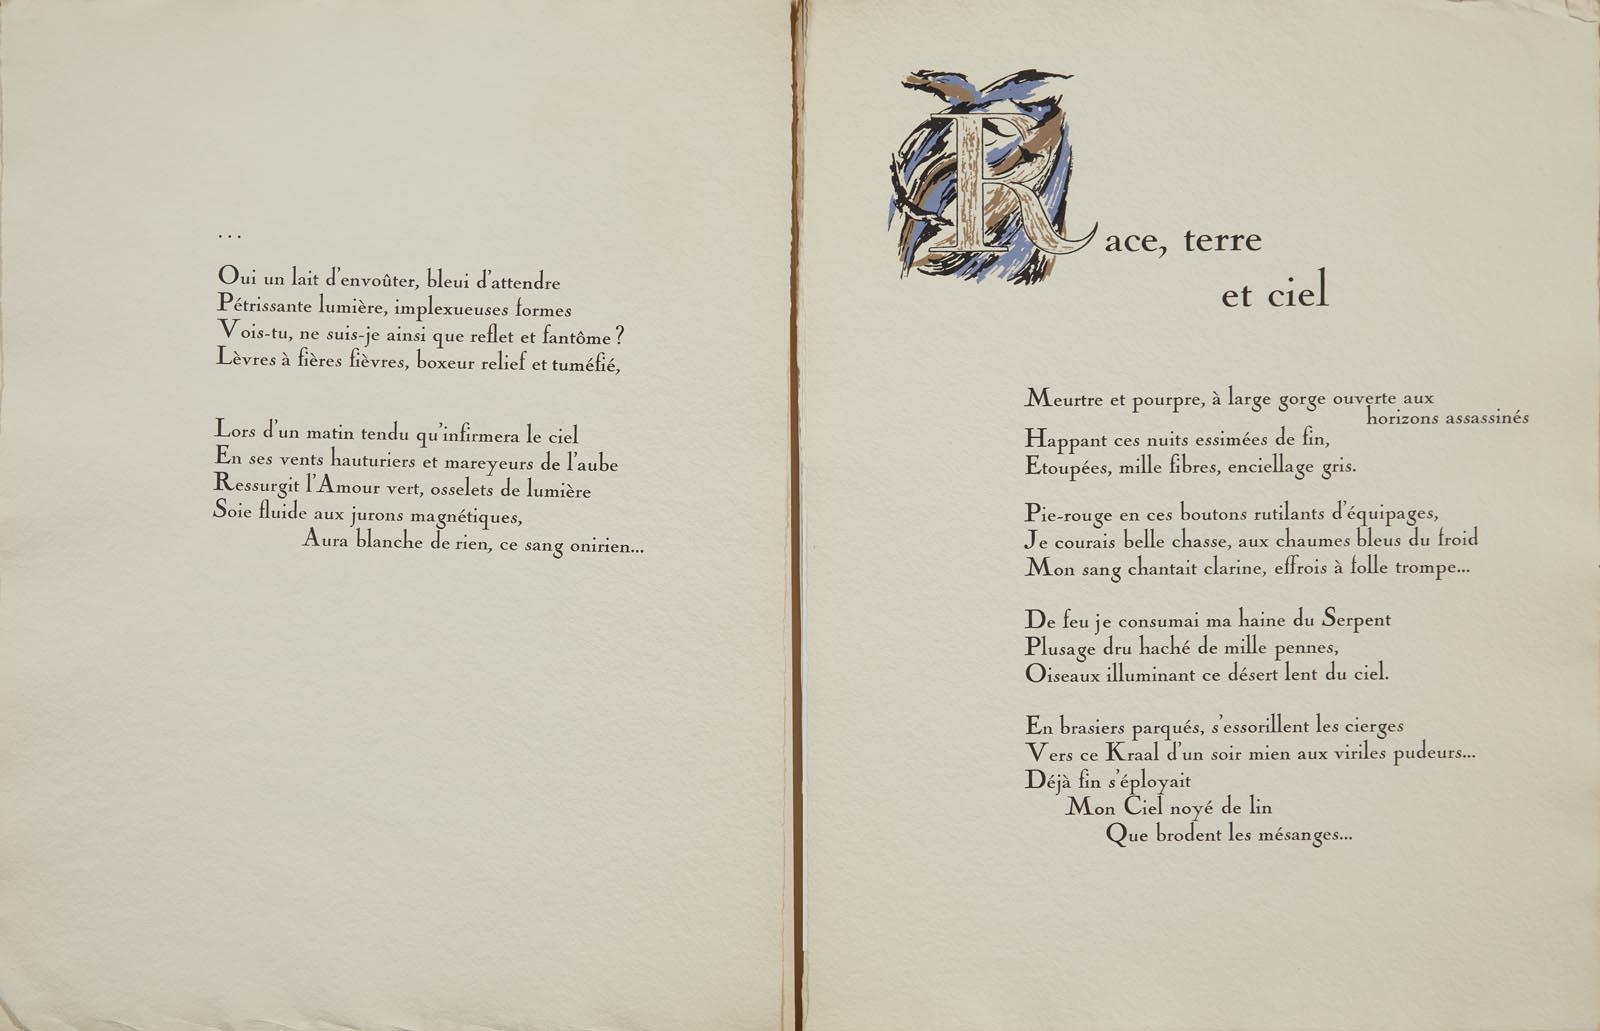 ...
Oui un lait d'envoûter, bleui d'attendre
Pétrissante lumière, implexueuses formes
Vois-tu, ne suis-je ainsi que reflet et fantôme ?
Lèvres à fières fièvres, boxeur relief et tuméfié,
Lors d'un matin tendu qu'infirmera le ciel
En ses vents hauturiers et mareyeurs de l'aube
Ressurgit l'Amour vert, osselets de lumière
Soie fluide aux jurons magnétiques,
Aura blanche de rien, ce sang onirien...
Race, terre
et ciel
Meurtre et pourpre, à large gorge ouverte aux
horizons assassinés
Happant ces nuits essimées de fin,
Etoupées, mille fibres, enciellage gris.
Pie-rouge en ces boutons rutilants d'équipages,
Je courais belle chasse, aux chaumes bleus du froid
Mon sang chantait clarine, effrois à folle trompe...
De feu je consumai ma haine du Serpent
Plusage dru haché de mille pennes,
Oiseaux illuminant ce désert lent du ciel.
En brasiers parqués, s'essorillent les cierges
Vers ce Kraal d'un soir mien aux viriles pudeurs...
Déjà fin s'éployait
Mon Ciel noyé de lin
Que brodent les mésanges...